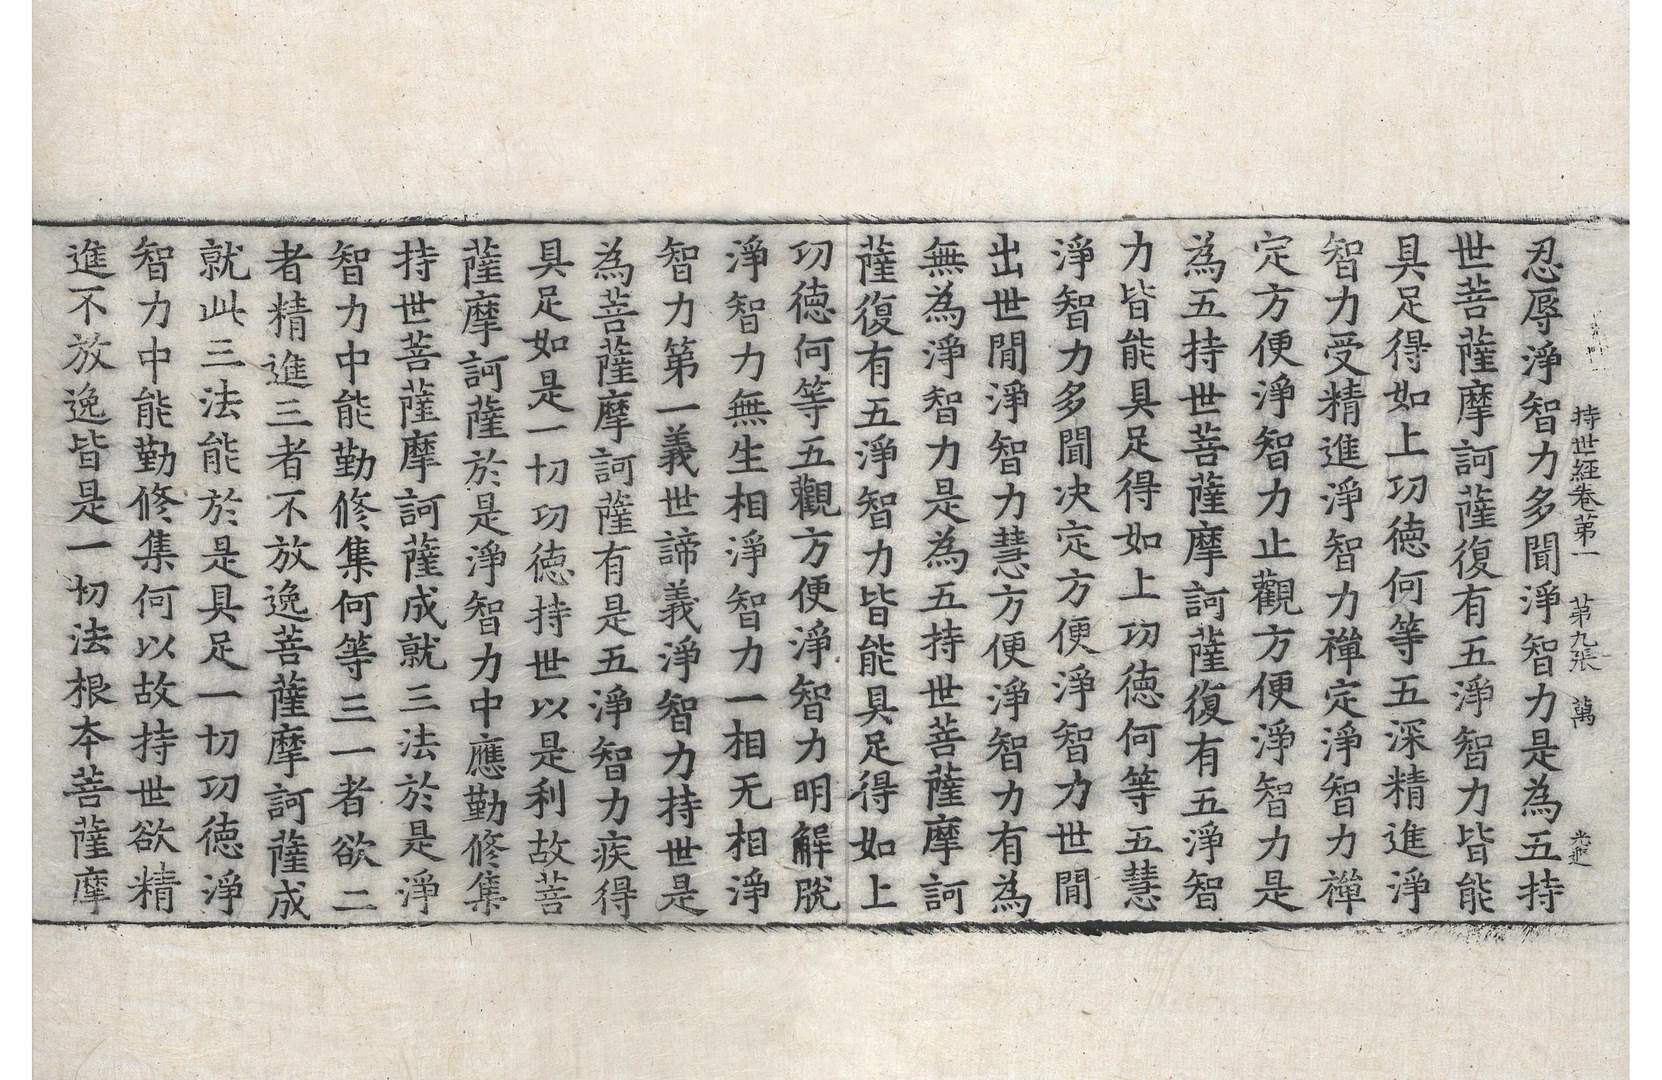 持世經卷第一　第九張　萬
忍辱淨智力多聞淨智力是為五持
世菩薩摩訶薩復有五淨智力皆能
具足得如上功德何等五深精進淨
智力受精進淨智力禪定淨智力禪
定方便淨智力止觀方便淨智力是
為五持世菩薩摩訶薩復有五淨智
力皆能具足得如上功德何等五慧
淨智力多聞決定方便淨智力世間
出世間淨智力慧方便淨智力有為
無為淨智力是為五持世菩薩摩訶
薩復有五淨智力皆能具足得如上
功德何等五觀方便淨智力明解脫
淨智力無生相淨智力一相无相淨
智力第一義世諦義淨智力持世是
為菩薩摩訶薩有是五淨智力疾得
具足如是一切功德持世以是利故菩
薩摩訶薩於是淨智力中應勤修集
持世菩薩摩訶薩成就三法於是淨
智力中能勤修集何等三一者欲二
者精進三者不放逸菩薩摩訶薩成
就此三法能於是具足一切功德淨
智力中能勤修集何以故持世欲精
進不放逸皆是一切法根本菩薩摩